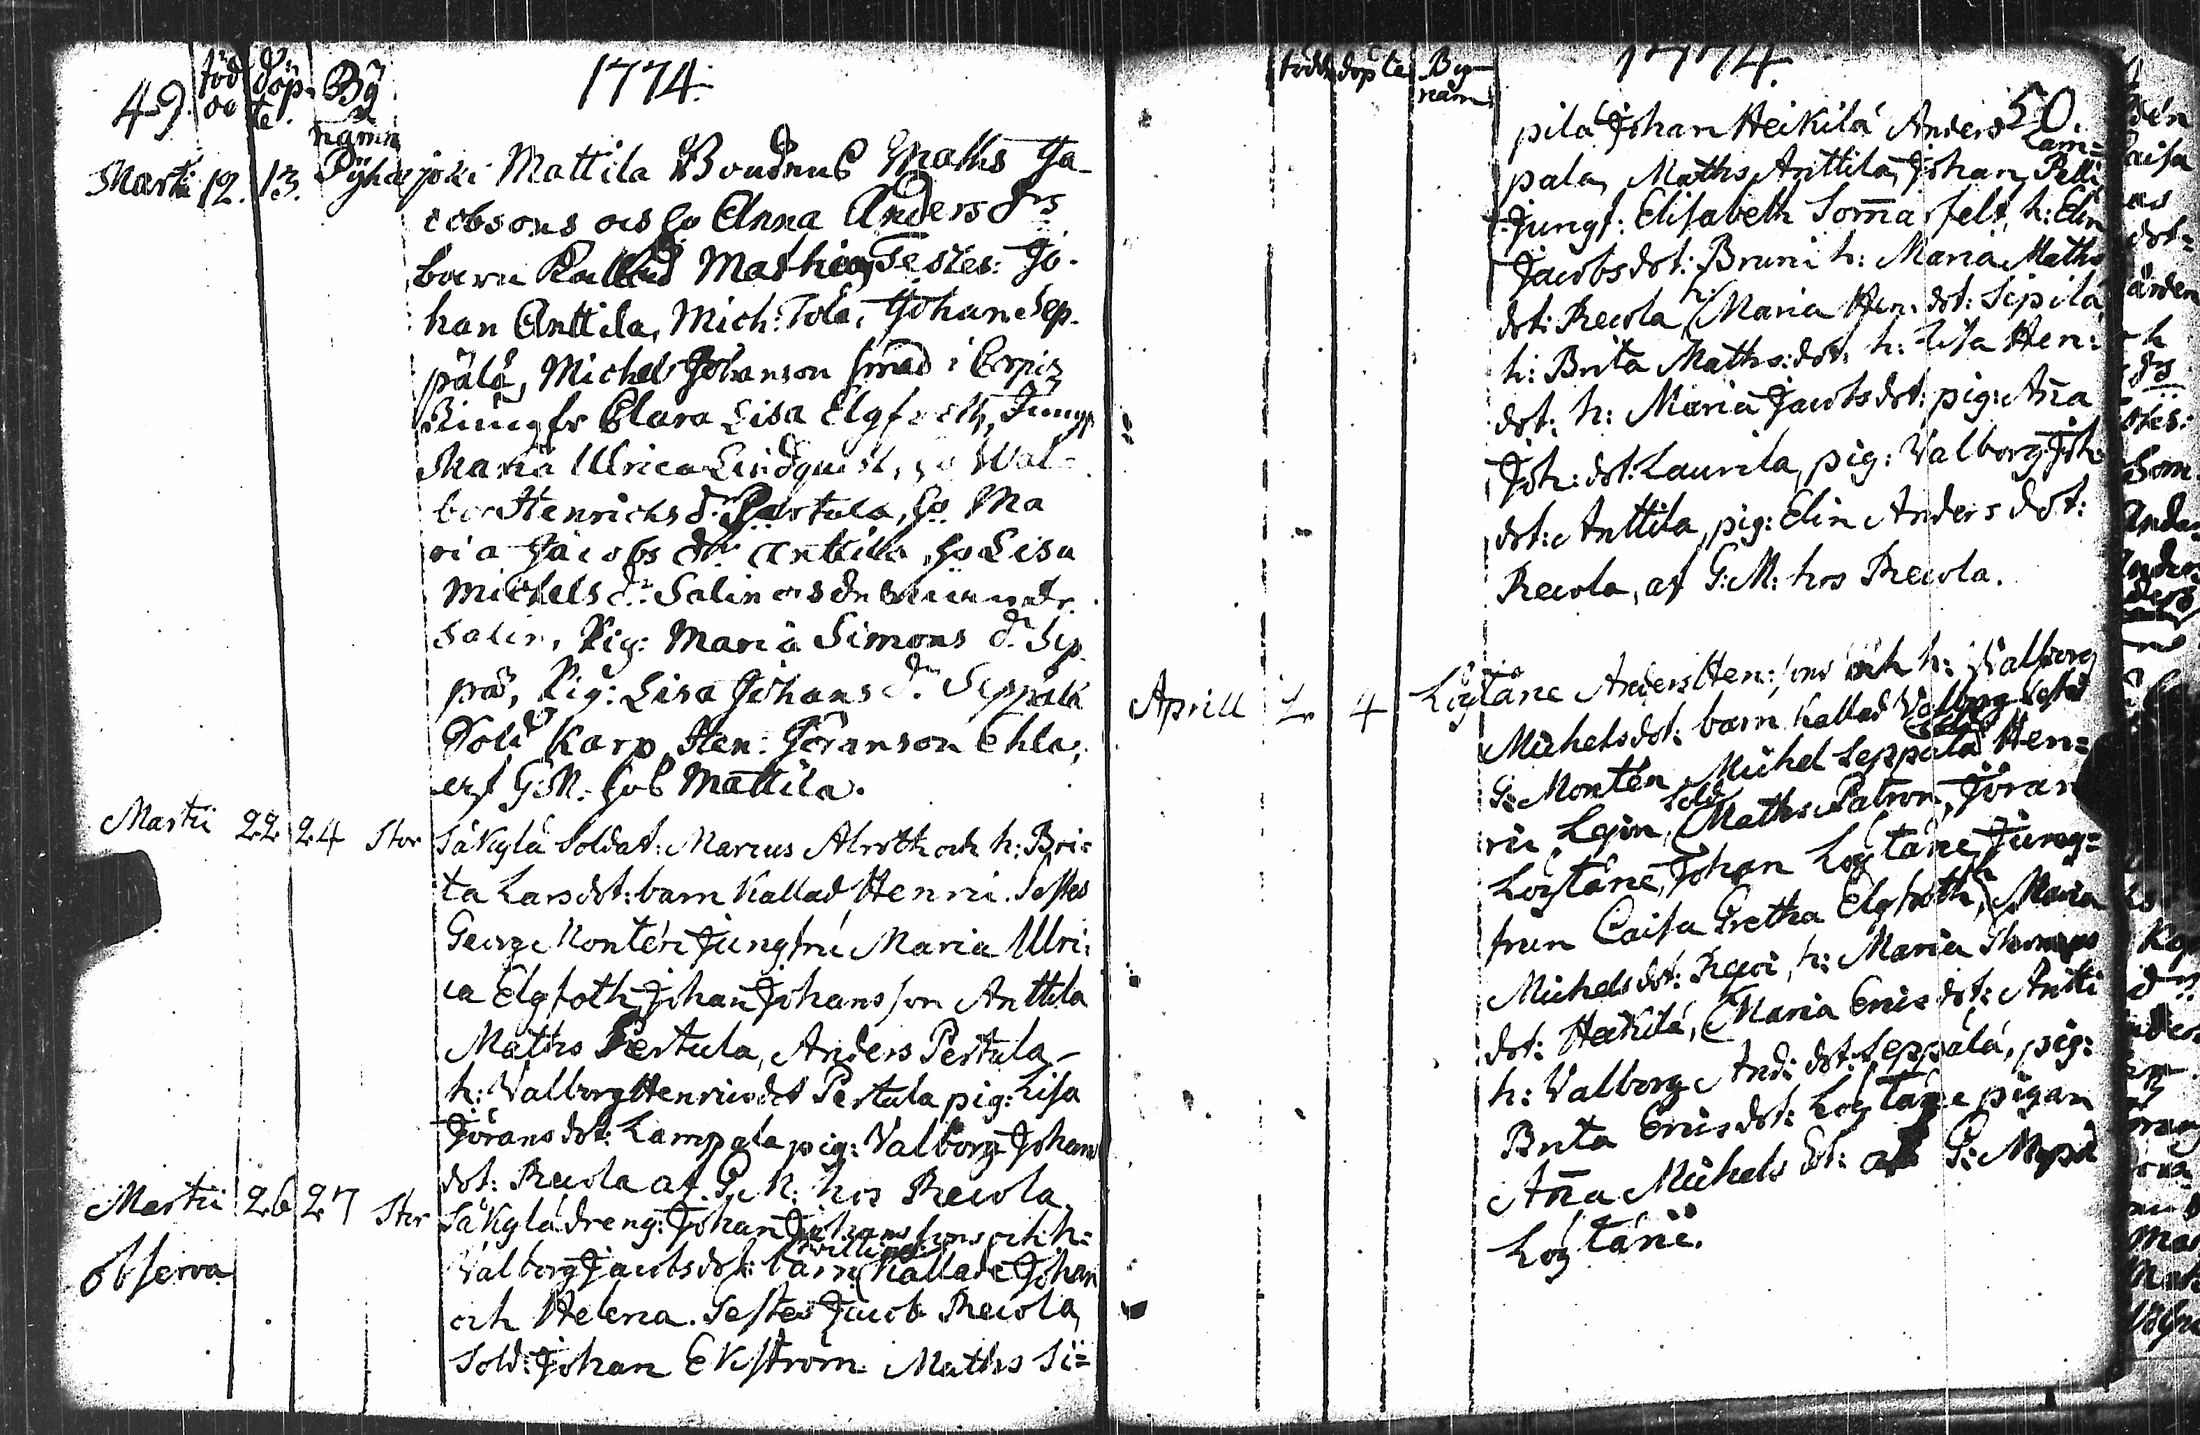 49. föd oo döp= te. By namn 1774.
Martii 12. 13. Pyhäjoki Mattila Bondens Maths Ja-
cobsons och ho Anna Anders dr
barn Kallad Mathias Testes: Jo-
han Anttila, Mich: Tola, Johan Sep-
pälä, Michel Johanson smed i
Jungfr Clara Lisa Elgfoth, Jungf
Maria Ulrica Lindquist, ho Wal-
bor Henrichs dr Pertula, ho Ma
ria Jacobs dr Anttila, ho Lisa
Michels dr Salin
Salin, Pig: Maria Simons dr Sep
pä, Pig: Lisa Johans dr Seppälä
Sold Karp Hen: Göranson
af G:M: hos Mattila.
Martii 22 24 Stor Säkylä Soldat: Marcus Alroth och h: Bri=
ta Larsdot: barn Kallad Henric. Testes
Georg Montén Jungfru Maria Ulri:
ca Elgfoth, Johan Johansson Anttila
Maths Pertula, Anders Pertula
h: Valborg Henricsdot Pertula pig: Lisa
Jöransdot: Lampala pig: Valborg Johans
dot: Recola af G: M: hos Recola
Martii 26 27 Stor Säkylä dreng: Johan Johanssons och h:
observa Valborg Jacobsdot: barn (tvillingar) Kallade Johan
och Helena. Testes Jacob Recola,
Sold: Johan Ekström Maths Si=
födde döpte By- namn 1774. 50.
pilä Johan Heikilä Anders Lam=
pala, Maths Anttila, Johan Pelli
Jungf: Elisabeth Som̄arfelt, h: Elin
Jacobsdot: Bruni h: Maria Maths
dot: Recola, h: Maria Hen: dot: Sipilä
h: Brita Maths: dot: h: Lisa Hen:
dot: h: Maria Jacobsdot: pig: An̄a
Joh: dot: Laurila, pig: Valborg Joh:
dot: Anttila, pig: Elin Anders dot:
Recola, af G: M: hos Recola.
Aprill 2 4 Löytäne Anders Hen: sons och h: Valborg
Michelsdot: barn Kallad Valborg Testes
G: Montén, Michel Seppälä Sold Hen=
ric Lejon, Sold Maths Patron, Jöran
Löytäne, Johan Löytäne, Jung=
frun Caisa Gretha Elgfoth, h Maria
Michelsdot: h: Maria Thomas
dot: Heikilä, Maria Ericsdot: Antti
h: Valborg And: dot: Seppälä, pig:
Brita Ericsdot: Löytäne pigan
An̄a Michels dot: af G: M: på
Löytäne.